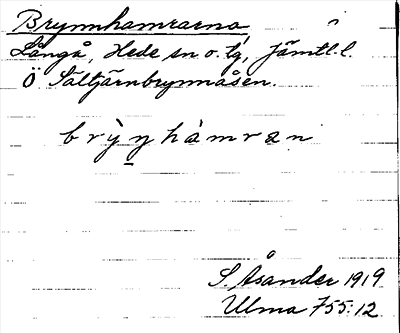 Brynnhamrarna
Långå, Hede sn o. tg, Jämtl. l.
Ö Sältjärnbrynnåsen.
brỳn̲hàmran
S. Åsander 1919
Ulma 755:12